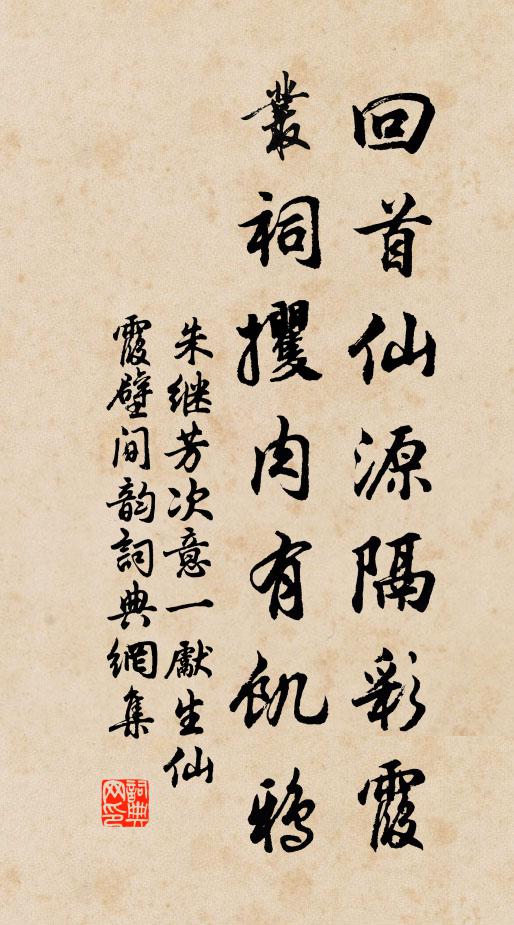 回首仙源隔彩霞
叢祠攫肉有飢鴉
朱继芳次意一獻生仙
霞壁间韵詞典網集
詞典
网印